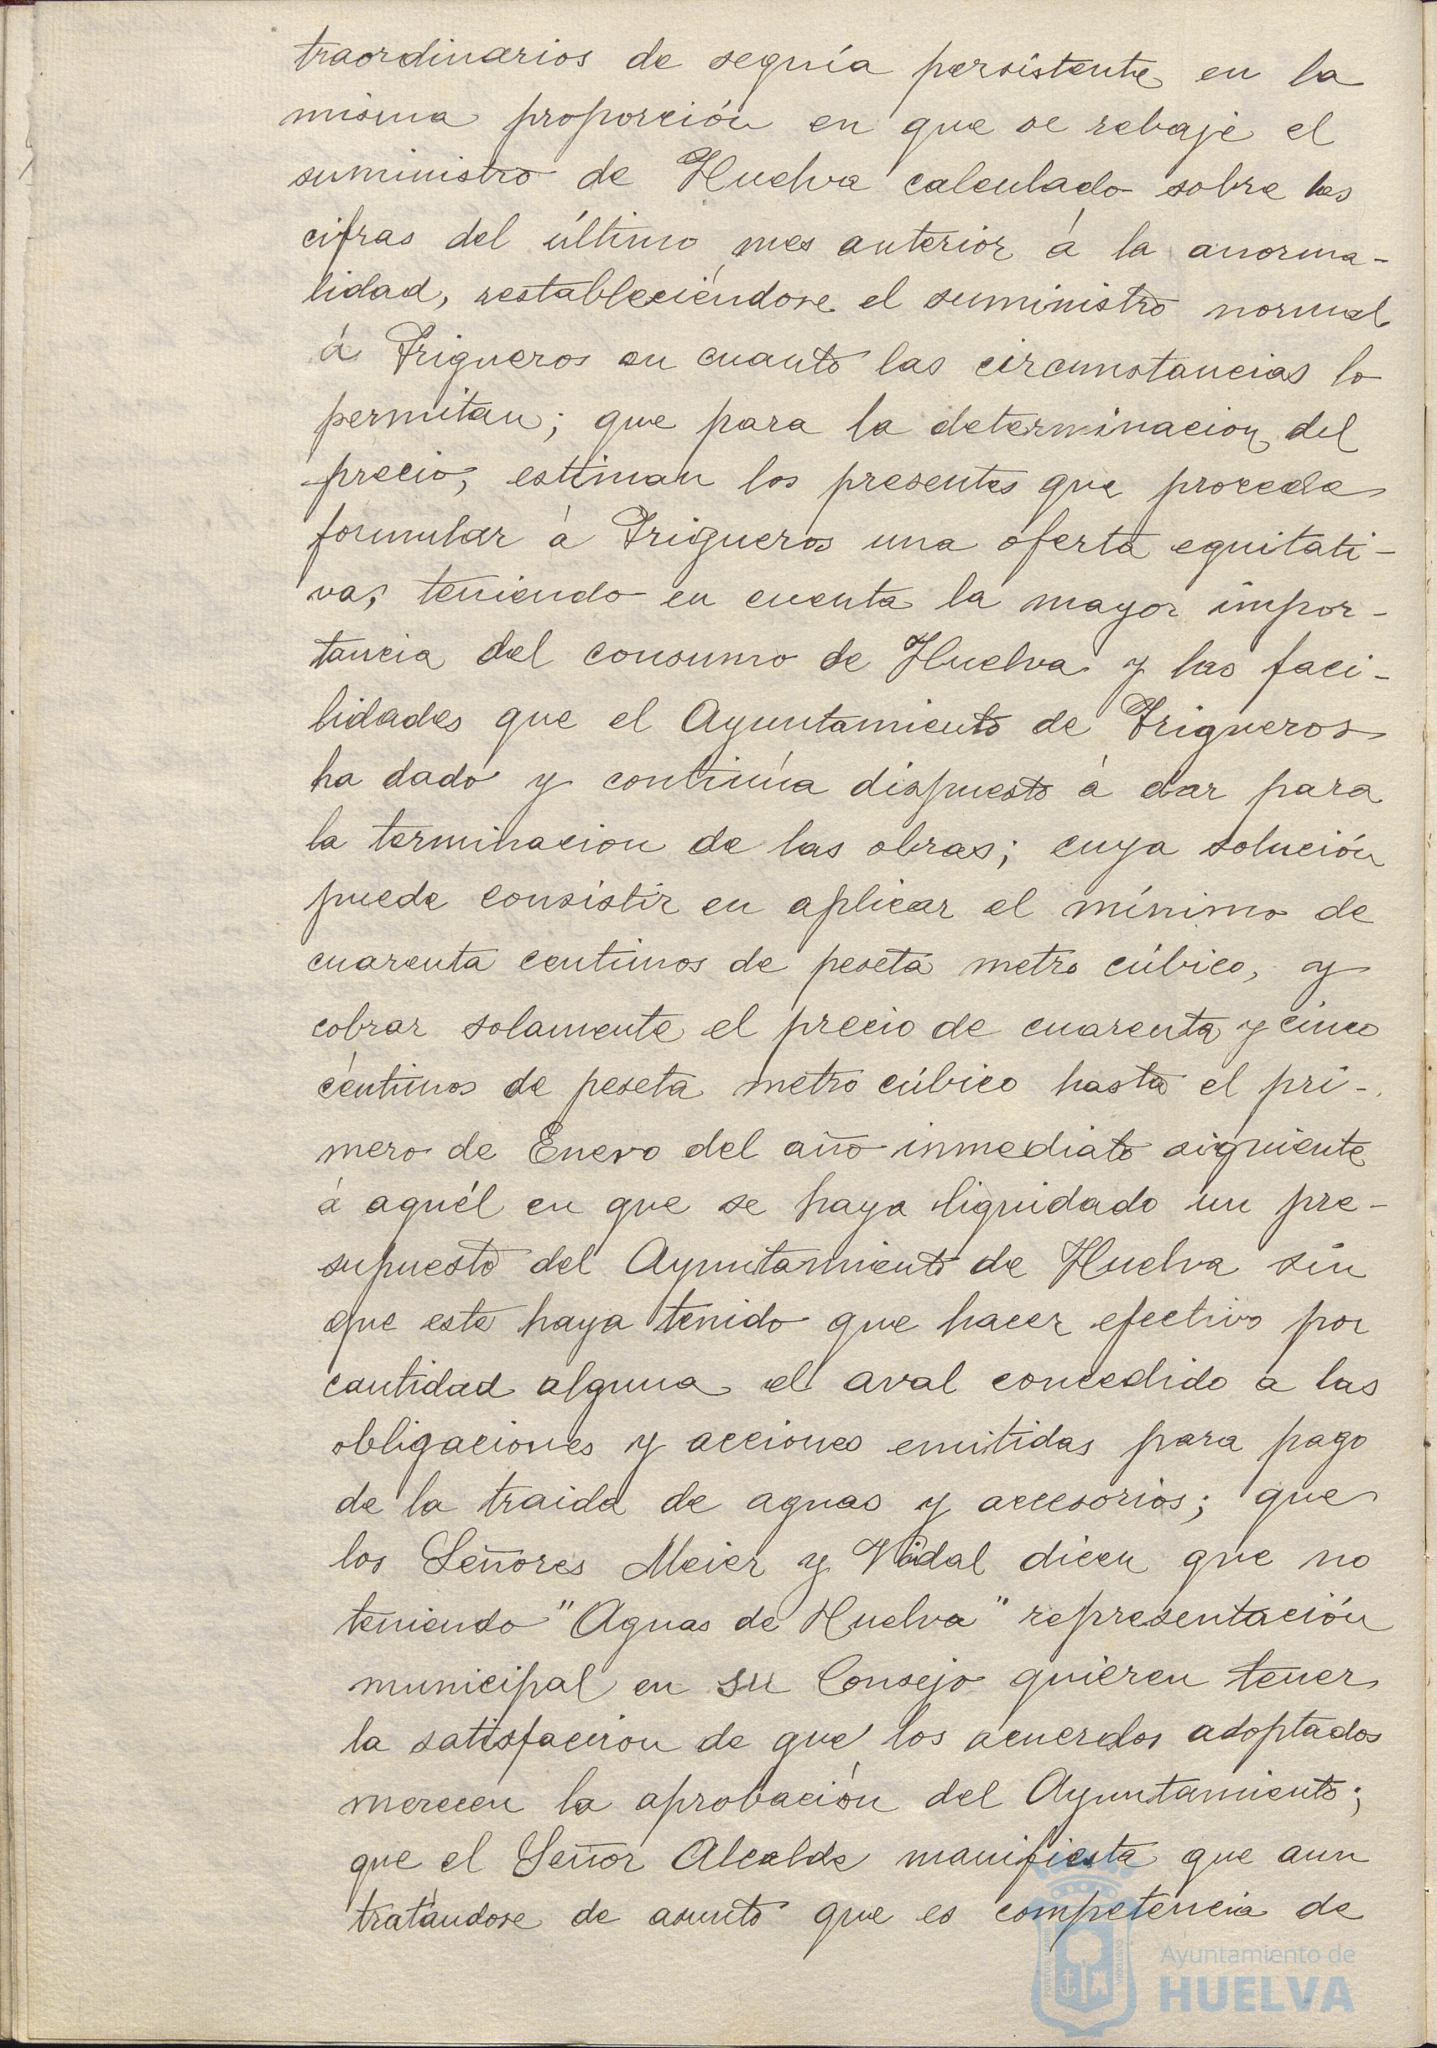 traordinarios de sequía persistente en la
misma proporción en que se rebaje el
suministro de Huelva calculado sobre las
cifras del último mes anterior á la anorma-
lidad, restableciéndose el suministro normal
á Trigueros en cuanto las circunstancias lo
permitan; que para la determinacion del
precio, estiman los presentes que procede
formular á Trigueros una oferta equitati-
va, teniendo en cuenta la mayor impor-
tancia del consumo de Huelva y las faci-
lidades que el Ayuntamiento de Trigueros
ha dado y continúa dispuesto á dar para
la terminacion de las obras; cuya solución
puede consistir en aplicar el mínimo de
cuarenta centimos de peseta metro cúbico, y
cobrar solamente el precio de cuarenta y cinco
céntimos de peseta metro cúbico hasta el pri-
mero de Enero del año inmediato siguiente
á aquél en que se haya liquidado un pre-
supuesto del Ayuntamiento de Huelva sin
que este haya tenido que hacer efectivo por
cantidad alguna el aval concedido a las
obligaciones y acciones emitidas para pago
de la traida de aguas y accesorios; que
los Señores Meier y Vidal dicen que no
teniendo "Aguas de Huelva" representación
municipal en su Consejo quieren tener
la satisfaccion de que los acuerdos adoptados
merecen la aprobación del Ayuntamiento;
que el Señor Alcalde manifiesta que aun
tratándose de asunto que es competencia de
Ayuntamiento de
HUELVA